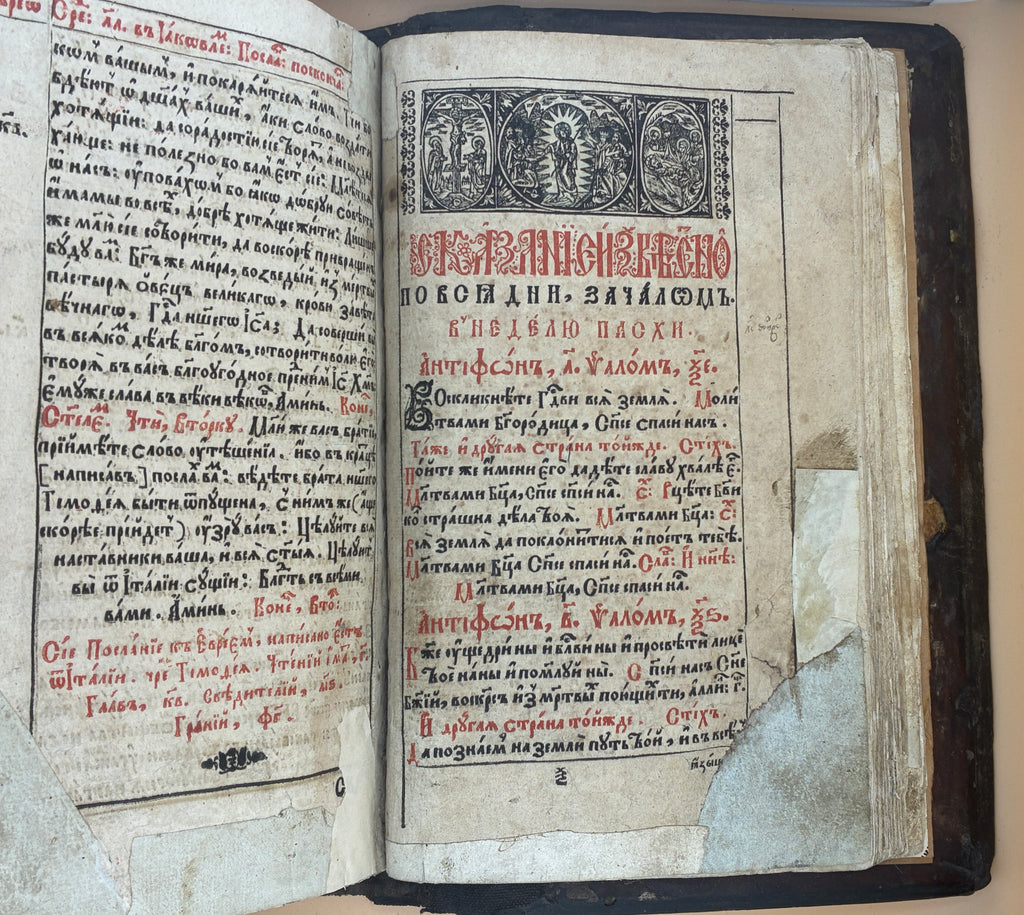 Сре҃: л҃л. въ Іа́ковле: Посла̑: поско̑нца̑:
кѡ́мъ ва́шымъ, и҆ покаря́йтеся и҆̀мъ. Тіи бо
бдѧ́тъ ѡ҆ дш҃а́хъ ва́шихъ, а҆́ки сло́во возда́ти
хотѧ́щіи: да сора́достїю сїѐ творѧ́тъ, а҆ не возды
ха́юще: не поле́зно бо ва́мъ є҆́сть сїѐ: Моли́теся
ѡ҆ на́съ: оу҆пова́хѡмъ бо ꙗ҆́кѡ до́брꙋ со́вѣсть
и҆́мамы во все́хъ, до́брѣ хотѧ́ще жи́ти: Ли́шше
же молю̀ сїѐ сотвори́ти, да воско́рѣ привращенъ
бꙋ́дꙋ ва́мъ: Бг҃ъ же ми́ра, возведы́й и҆з̾ ме́ртвыхъ
па́стырѧ ѻ҆ве́цъ вели́кагѡ, кро́вїю завѣ́та
вѣ́чнагѡ, Гд҃а на́шегѡ І҆и҃са: Да соверши́тъ вы̀
въ всѧ́комъ дѣ́лѣ бл҃го́мъ, сотвори́ти во́лю є҆гѡ̀
творѧ̀ въ ва́съ бл҃гоуго́дное пре́дъ ни́мъ І҆и҃съ Хр҃то́мъ
Є҆мꙋ́же сла́ва въ вѣ́ки вѣкѡ́въ, А҆ми́нь. Коне́цъ,
Стꙋ̑пле̑. Чти̑, Вто́ркꙋ. Молю́ же ва́съ бра́тїе
прїимѣ́те сло́во оу҆тѣше́нїѧ. и҆́бо въ кра́тцѣ
[написа́въ] посла́хъ ва́мъ: вѣ́дѣте бра́та на́шего
Тимоде́ѧ бы́ти ѿпꙋ́щена, с̾ ни́мъ же (а҆́ще
скорѣ́е прїи́детъ) оу҆зрю̀ ва́съ: Цѣлꙋ́йте всѧ̀
наста́вники ва́ша, и҆ всѧ̀ ст҃ы́ѧ. Цѣлꙋ́ютъ
вы̀ ѿ І҆та́лїи сꙋ́щїи: Бл҃года́ть съ всѣ́ми
ва́ми. А҆ми́нь. Коне́цъ, Вто̑:
Сїѐ Посла́нїе къ Є҆вре́ємъ, написано є҆́сть
ѿ І҆та́лїи. чре̑ Тимоде́ѧ. Чте́нїй и҆́мать,
Гла́въ, Свѣди́телїй,
Гра́нїй, ф҃в.
СКАЗАНЇЕ ИЗВѢСТНО
ПО ВСѦ ДНИ, ЗАЧАЛѠМЪ.
В НЕДЕЛЮ ПАСХИ.
А҆нтїфѡ́нъ, а҃. Ѱало́мъ, ѯ҃е.
Воскли́кнѣте Гд҃ви всѧ̀ землѧ̀. Моли́
твами Бг҃оро́дица, Сп҃се спаси на́съ.
Та́же и҆ дрꙋга́ѧ страна̀ то́йжде. Сті́хъ.
По́йте же и҆́мени є҆гѡ̀ дади́те сла́вꙋ хвалѣ̀ є҆гѡ̀.
Мл҃твами Бц҃а, Сп҃се сп҃си на̑. С̑: Рцѣ́те Бг҃ви
ко́ль страшна дѣла̀ твоѧ̀. Мл҃твами Бц҃а: С̑:
Всѧ̀ землѧ̀ да покло́ни́тися и҆ пое́тъ тебѣ̀.
Мл҃твами Бц҃а Сп҃се спаси на̑. Сла̑: И҆ нн҃ѣ:
Мл҃твами Бц҃а, Сп҃се спаси на̑.
А҆нтїфѡ́нъ, в҃. Ѱало́мъ, ѯ҃ѕ.
Бж҃е оу҆ще́дри ны̀ и҆ бл҃гви́ ны̀ и҆ просвѣтѝ лицѐ
твоѐ на́ ны̀ и҆ поми́лꙋй ны̀. Сп҃си на́съ Сн҃е
Бж҃їй, воскр҃съ и҆з̾ ме́ртвыхъ пою́щихъ ти, аллилꙋ́їа: г҃.
И҆ дрꙋга́ѧ страна̀ то́йжде. Сті́хъ.
Да позна́емъ на землѝ пꙋ́ть тво́й, и҆ въ всѣ́хъ
ꙗ҆зы́цѣ
ѯ҃